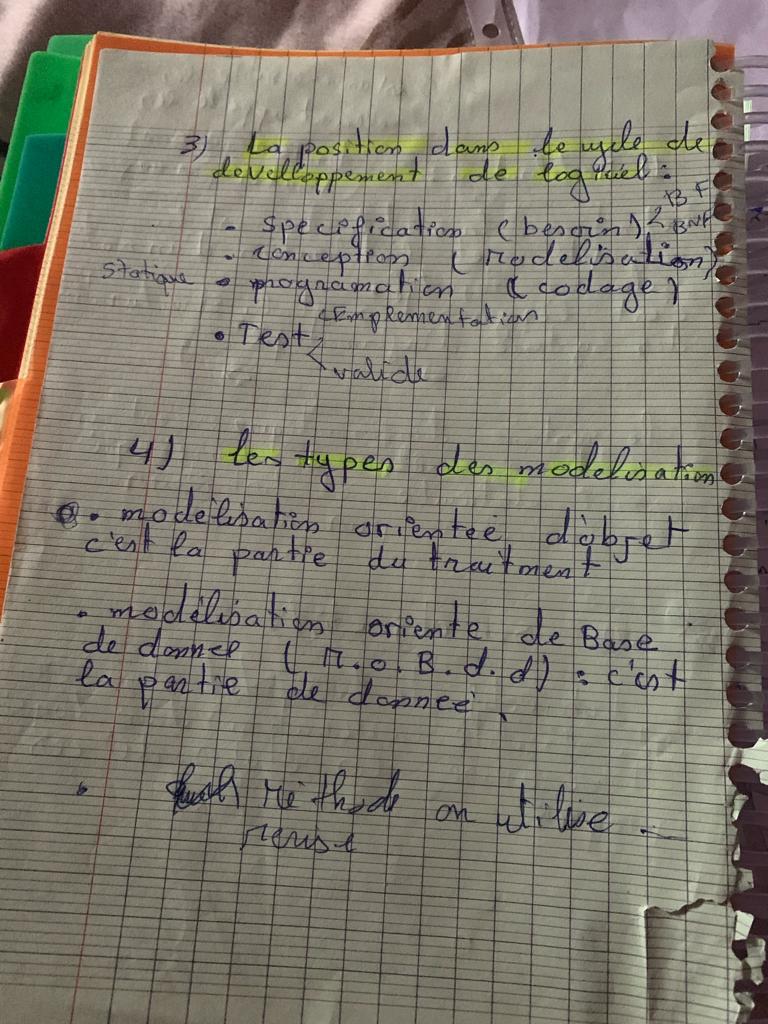 3) La position dans le cycle de
développement de logiciel :
- Specification (besoin) < BF
BNF
- conception (Modelisation)
statique • programation (codage)
• Test < Emplementation
valide
4) les types des modelisation
• modélisation orientée d'objet
c'est la partie du traitment
• modélisation oriente de Base
de donnee (M.O.B.d.d) : c'est
la partie de donneé.
• Méthode on utilise